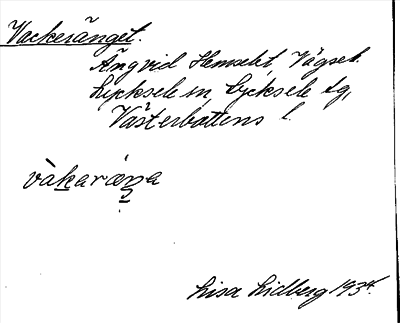 Vackesänget.
Ängvid Hemsket, Vägsel.
Lycksele sn, Lycksele lg,
Västerbottens l.
vàkaráŋa
Lisa Lidberg 1934.